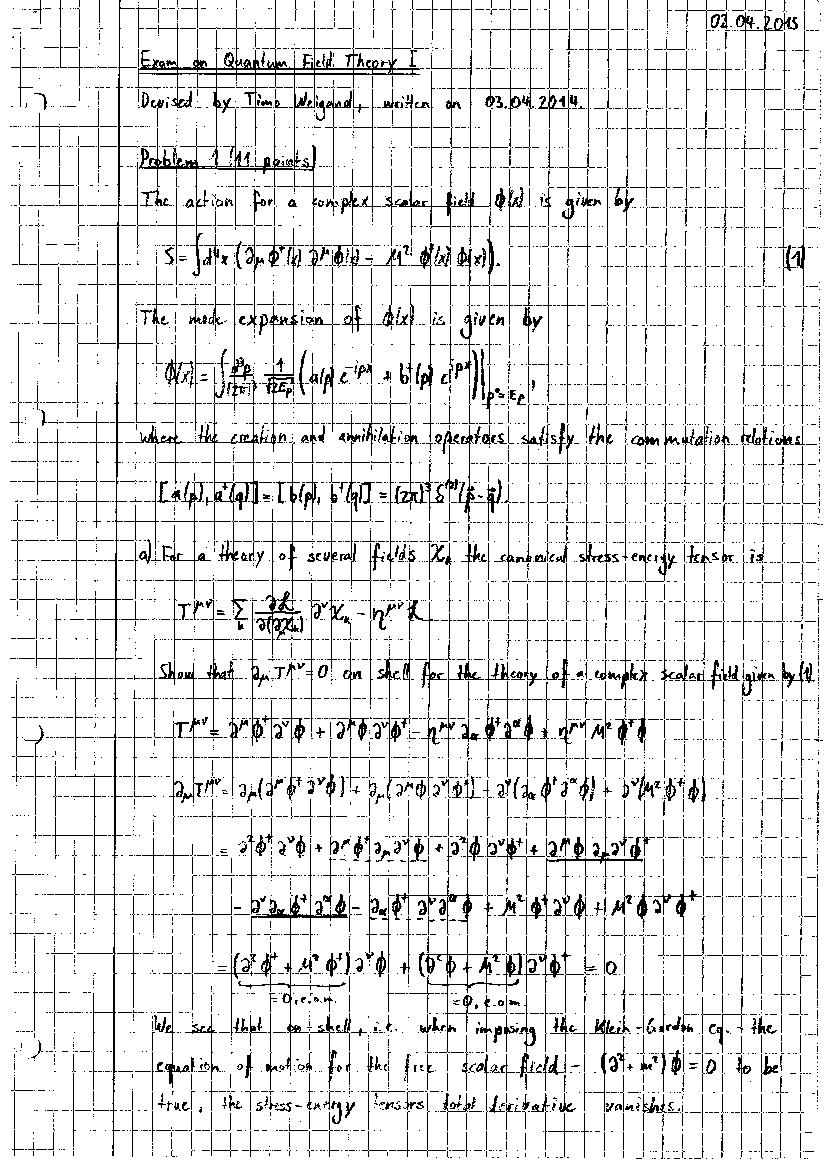 03.04.2015
Exam on Quantum Field Theory I
Devised by Timo Weigand, written on 03.04.2014.
Problem 1 (11 points)
The action for a complex scalar field ϕ(x) is given by
S = ∫d⁴x (∂_μ ϕ†(x) ∂^μ ϕ(x) − M² ϕ†(x) ϕ(x)). (1)
The mode expansion of ϕ(x) is given by
ϕ(x) = ∫ d³p/(2π)³ 1/√(2E_p) (a(p) e^{-ipx} + b†(p) e^{ipx})|_{p⁰=E_p},
where the creation and annihilation operators satisfy the commutation relations
[a(p), a†(q)] = [b(p), b†(q)] = (2π)³ δ^{(3)}(p⃗-q⃗).
a) For a theory of several fields χ_k the canonical stress-energy tensor is
T^{μν} = ∑_k ∂ℒ/∂(∂_μχ_k) ∂^ν χ_k − η^{μν} ℒ
Show that ∂_μ T^{μν} = 0 on shell for the theory of a complex scalar field given by (1).
T^{μν} = ∂^μ ϕ† ∂^ν ϕ + ∂^μ ϕ ∂^ν ϕ† − η^{μν} ∂_α ϕ† ∂^α ϕ + η^{μν} M² ϕ† ϕ
∂_μ T^{μν} = ∂_μ(∂^μ ϕ† ∂^ν ϕ) + ∂_μ(∂^μ ϕ ∂^ν ϕ†) − ∂^ν(∂_α ϕ† ∂^α ϕ) + ∂^ν(M² ϕ† ϕ)
= ∂² ϕ† ∂^ν ϕ + ∂^μ ϕ† ∂_μ ∂^ν ϕ + ∂² ϕ ∂^ν ϕ† + ∂^μ ϕ ∂_μ ∂^ν ϕ†
− ∂^ν ∂_α ϕ† ∂^α ϕ − ∂_α ϕ† ∂^ν ∂^α ϕ + M² ϕ† ∂^ν ϕ + M² ϕ ∂^ν ϕ†
= (∂² ϕ† + M² ϕ†) ∂^ν ϕ + (∂² ϕ + M² ϕ) ∂^ν ϕ† = 0
=0, e.o.m. =0, e.o.m.
We see that on shell, i.e. when imposing the Klein-Gordon eq. - the
equation of motion for the free scalar field - (∂² + m²) ϕ = 0 to be
true, the stress-energy tensors total derivative vanishes.